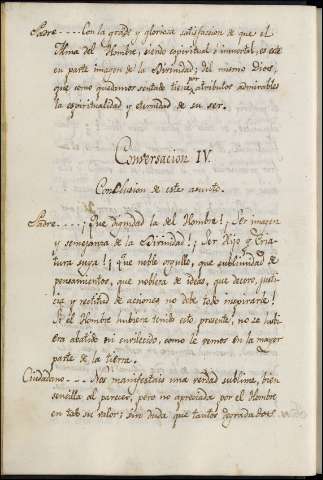 Padre.... Con la grade y gloriosa satisfaccion de que el
Alma del Hombre, siendo espiritual é inmortal, es este
en parte imagen de la Divinidad; del mismo Dios,
que como quedamos sentado tiene pr. atributos admirables
la espiritualidad y eternidad de su ser.
Conversacion IV.
Conclusion de este asunto.
Padre.... ¡Que dignidad la del Hombre! ¡Ser imagen
y semejanza de la Divinidad! ¡Ser Hijo y Cria-
tura suya! ¡que noble orgullo, que sublimidad de
pensamientos, que nobleza de ideas, que decoro, justi-
cia y rectitud de acciones no debe todo inspirarle!
Si el Hombre hubiera tenido esto presente, no se hubi-
era abatido ni envilecido, como le vemos en la mayor
parte de la tierra.
Ciudadano.... Nos manifestais una verdad sublime, bien
sencilla al parecer, pero no apreciada por el Hombre
en todo su valor; sin duda que tantos degradados